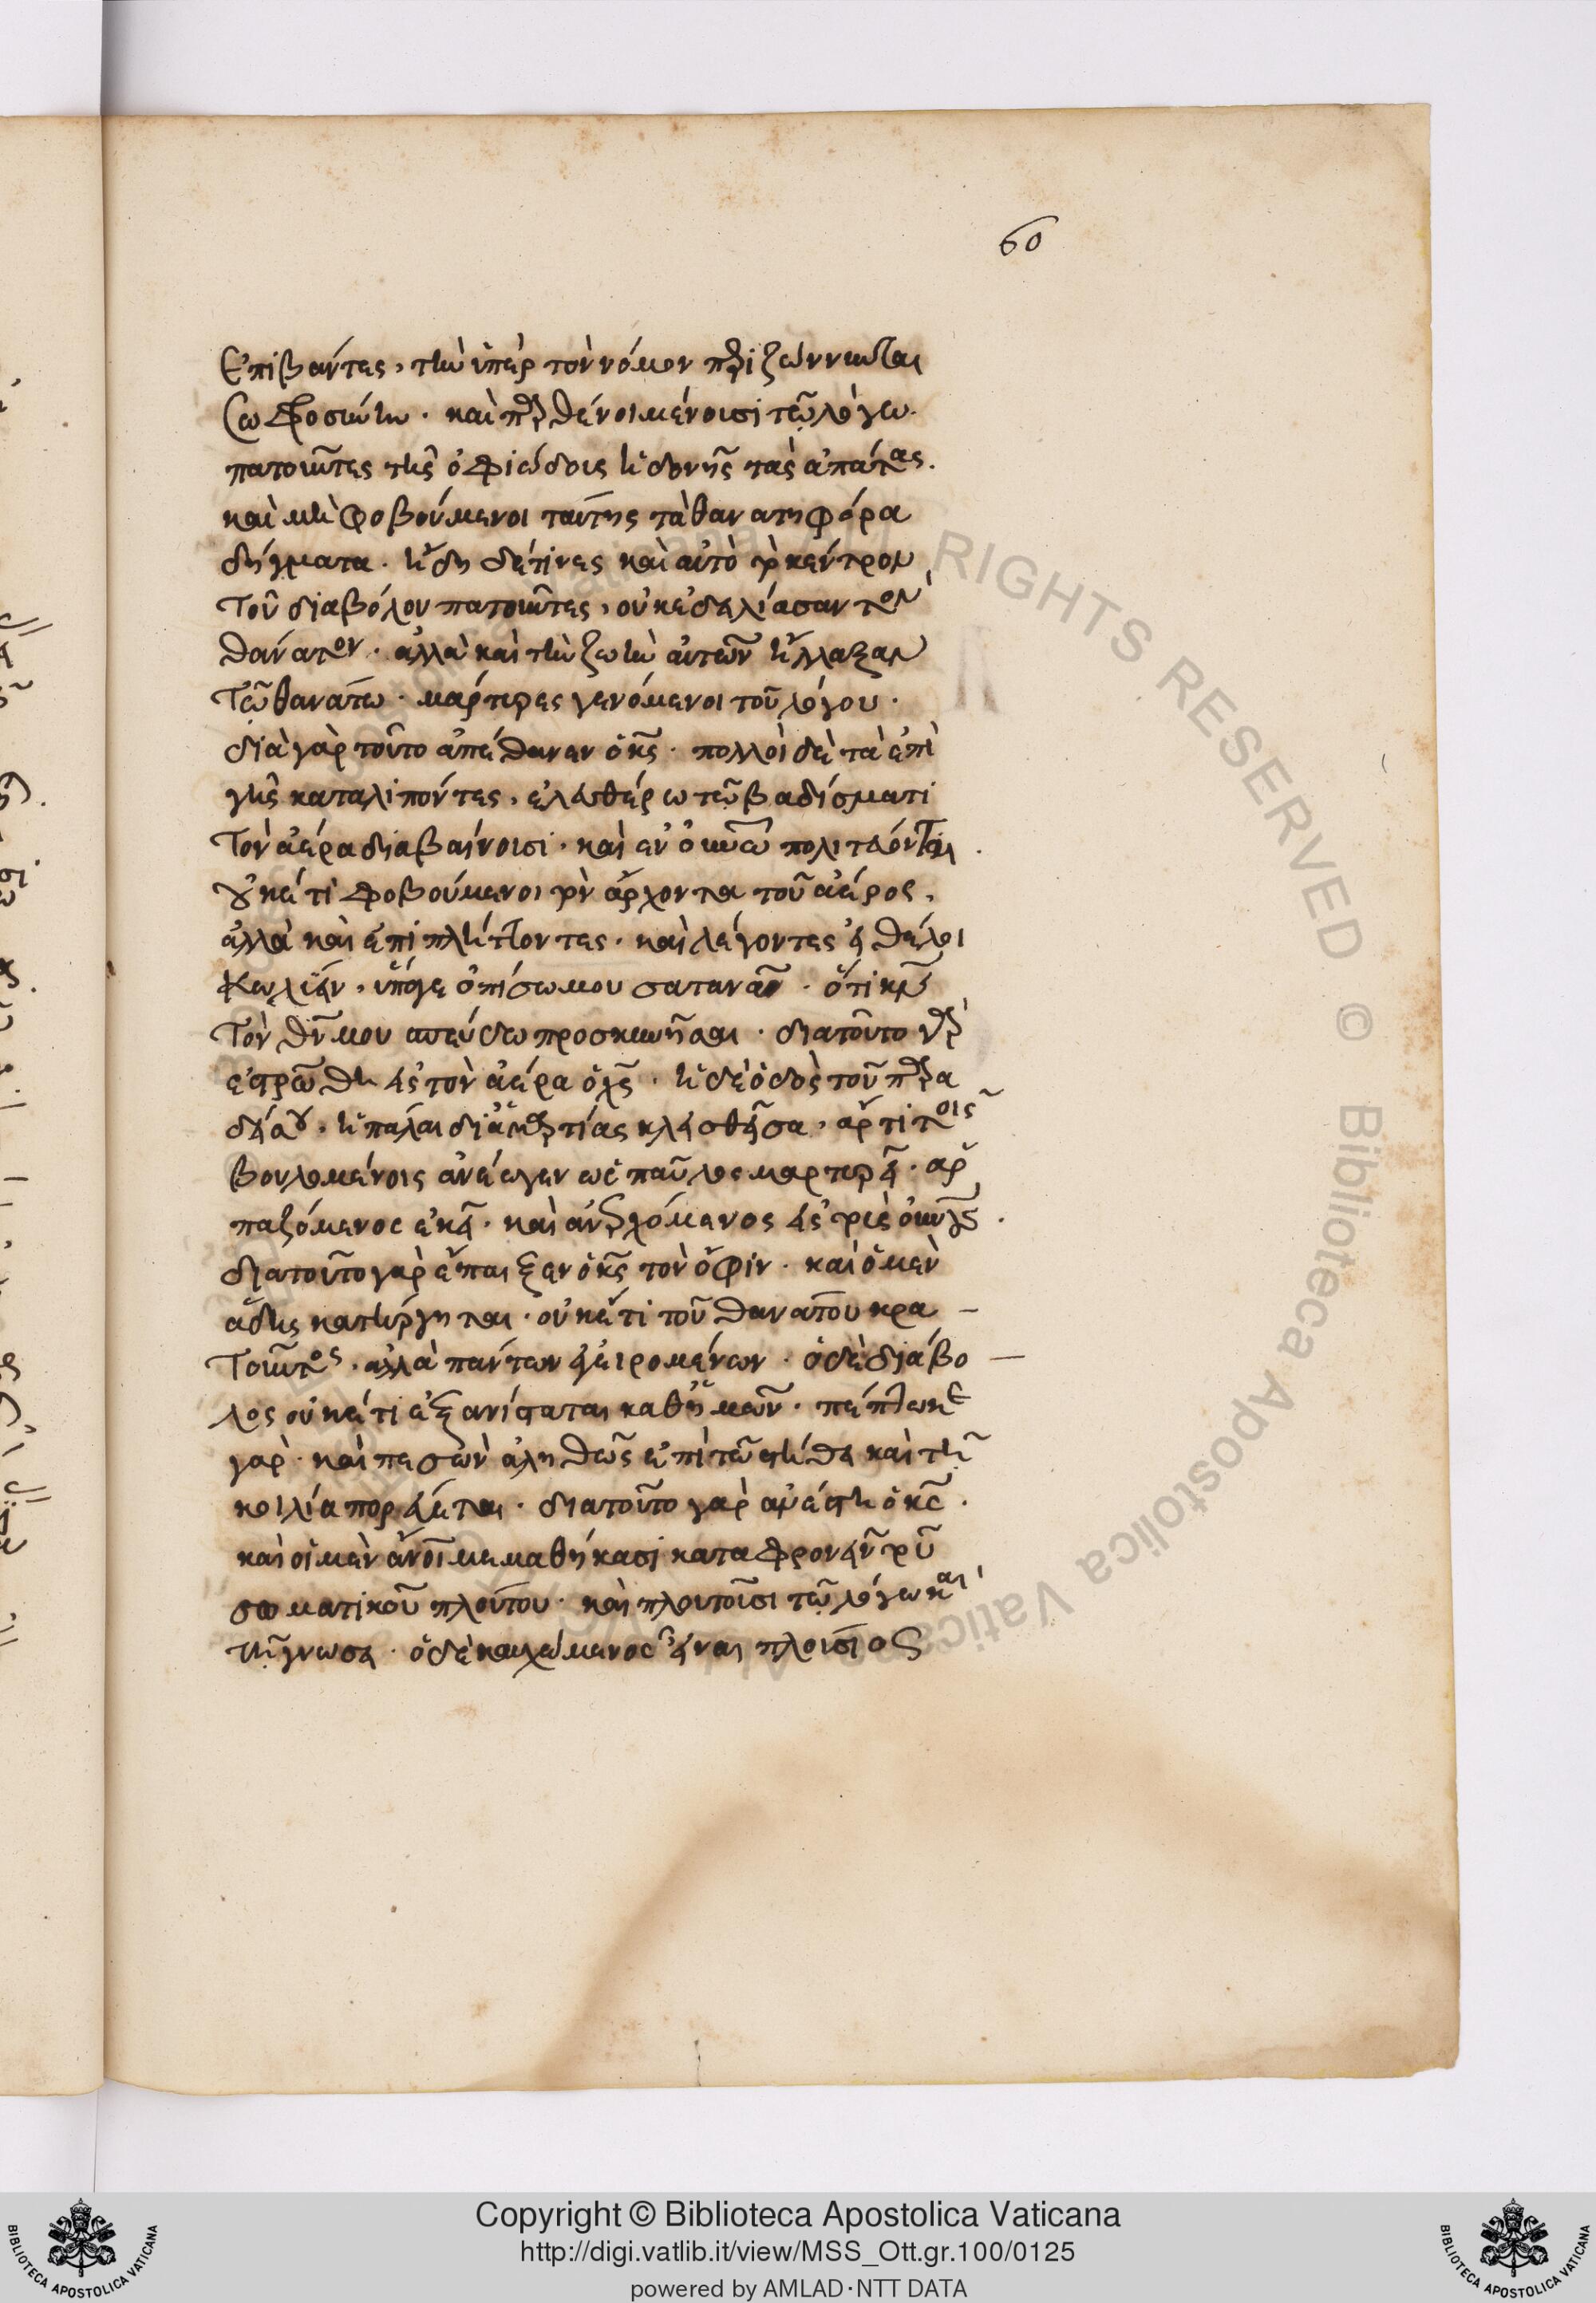 60
Ἐπιβάντες, τὴν ὑπὲρ τὸν νόμον περιζώννυνται
σωφροσύνην. καὶ παρθένοι μένουσι τῷ λόγω.
πατοῦντες τῆς ὀφιώδους ἡδονῆς τὰς ἀπάτας.
καὶ μὴ φοβούμενοι ταύτης τὰ θανατηφόρα
δήγματα. ἤδη δέ τινες καὶ αὐτὸ τὸ κέντρον
Τοῦ διαβόλου πατοῦντες, οὐκ ἐδειλίασαν τὸν
θάνατον. ἀλλὰ καὶ τὴν ζωὴν αὐτῶν ἤλλαξαν
Τῷ θανάτω. μάρτυρες γενόμενοι τοῦ λόγου.
διὰ γὰρ τοῦτο ἀπέθανεν ὁ κς. πολλοὶ δὲ τὰ ἐπὶ
γῆς καταλιπόντες, ἐλευθέρω τῷ βαδίσματι
Τὸν ἀέρα διαβαίνουσι. καὶ ἐν οὐνῶ πολιτεύονται.
οὐκέτι φοβούμενοι τὸν ἄρχοντα τοῦ ἀέρος,
ἀλλὰ καὶ ἐπιπλήττοντες. καὶ λέγοντες εἰ θέλοι
κωλύειν, ὕπαγε ὀπίσω μου σατανᾶν. ὅτι κν
Τὸν θν μου σπεύδω προσκυνῆσαι. διατοῦτο γὰρ
ἐστρώθη εἰς τὸν ἀέρα ὁ χς. ἡ δὲ ὁδὸς τοῦ παρα
δείσου, ἡ πάλαι δι' ἁμαρτίας κλεισθεῖσα, ἄρτι τοῖς
βουλομένοις ἀνέωγεν ὡς παῦλος μαρτυρεῖ. ἁρ
παζόμενος ἐκεῖ. καὶ ἀνερχόμενος εἰς τοὺς οὐνούς.
διατοῦτο γὰρ ἔπαιξεν ὁ κς τὸν ὄφιν. καὶ ὁ μὲν
ἅδης κατήργηται. οὐκέτι τοῦ θανάτου κρα
Τοῦντος. ἀλλὰ πάντων ἐγειρομένων. ὁ δὲ διάβο
λος οὐκέτι ἐξανίσταται καθ' ἡμῶν. πέπτωκε
γὰρ. καὶ πεσὼν ἀληθῶς ἐπὶ τῷ στήθει καὶ τῆ
κοιλία πορεύεται. διατοῦτο γὰρ ἀνέστη ὁ κς.
καὶ οἱ μὲν ἄνοι μεμαθήκασι καταφρονεῖν τοῦ
σωματικοῦ πλούτου. καὶ πλουτοῦσι τῷ λόγω καὶ
τῆ γνώσει. ὁ δὲ καυχώμενος εἶναι πλούσιος
Copyright © Biblioteca Apostolica Vaticana
http://digi.vatlib.it/view/MSS_Ott.gr.100/0125
powered by AMLAD·NTT DATA